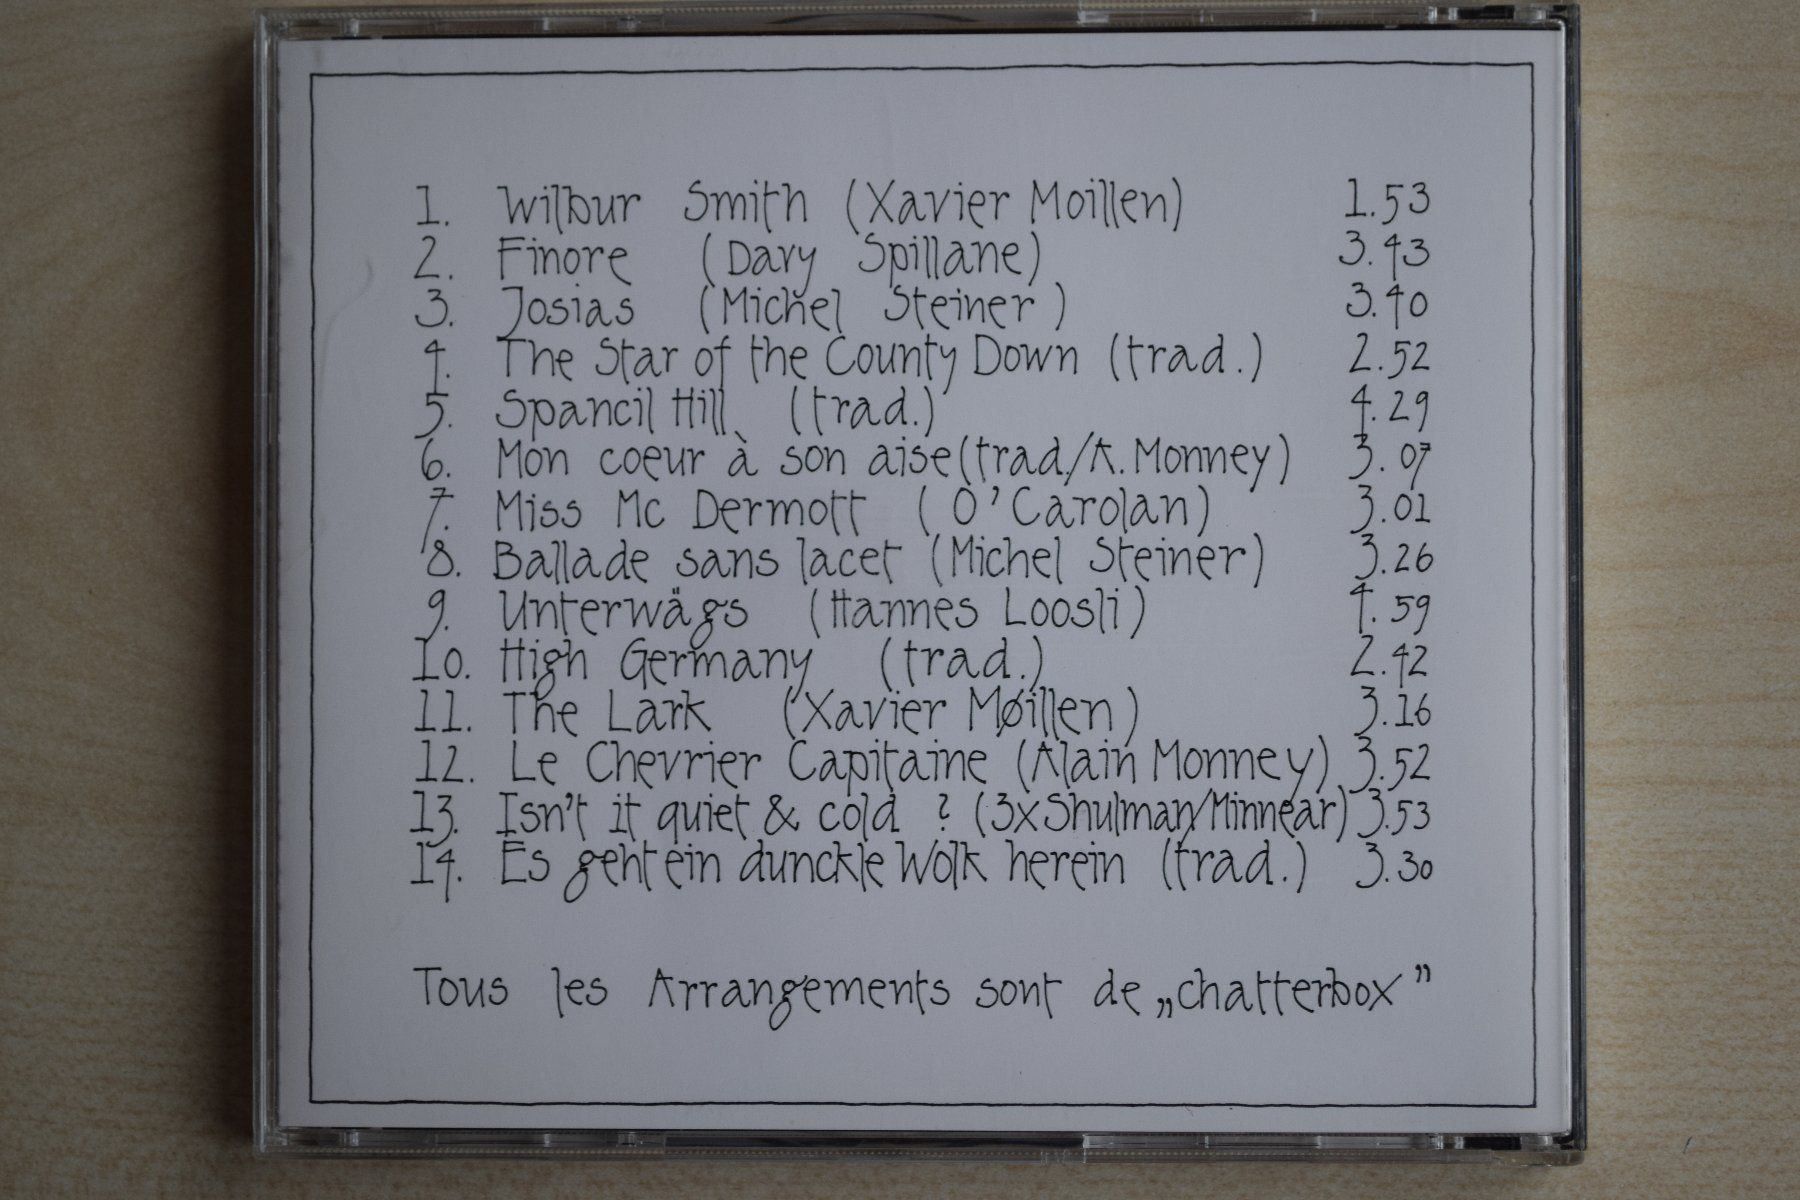 1. Wilbur Smith (Xavier Moillen) 1.53
2. Finore (Davy Spillane) 3.43
3. Josias (Michel Steiner) 3.40
4. The Star of the County Down (trad.) 2.52
5. Spancil Hill (trad.) 4.29
6. Mon coeur à son aise (trad./A. Monney) 3.07
7. Miss Mc Dermott (O'Carolan) 3.01
8. Ballade sans lacet (Michel Steiner) 3.26
9. Unterwägs (Hannes Loosli) 4.59
10. High Germany (trad.) 2.42
11. The Lark (Xavier Møillen) 3.16
12. Le Chevrier Capitaine (Alain Monney) 3.52
13. Isn't it quiet & cold ? (3x Shulman/Minnear) 3.53
14. Es geht ein dunckle Wolk herein (trad.) 3.30
Tous les Arrangements sont de „chatterbox”